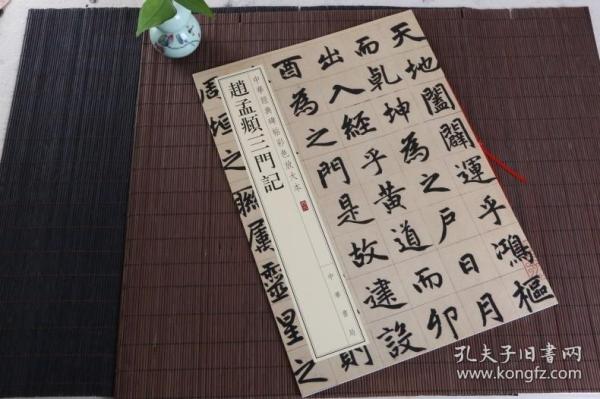 天地闔闢運乎鴻樞
而乾坤為之戶日月
出入經乎黃道而卯
酉為之門是故建設
則
周垣之聯屬靈星之
中華經典碑帖彩色放大本
趙孟頫三門記
中華書局
孔夫子旧书网
www.kongfz.com